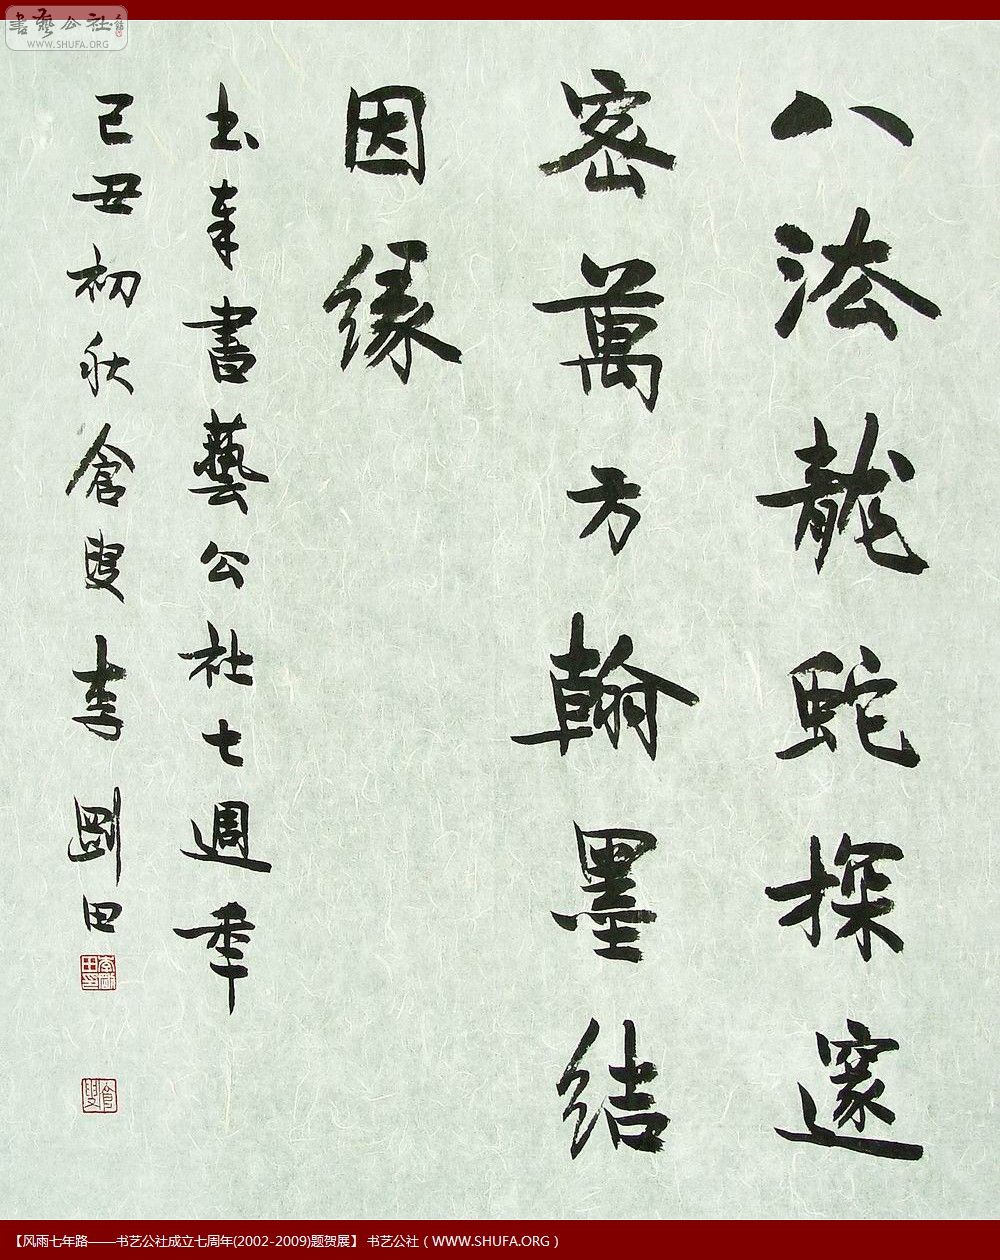 書藝公社
WWW.SHUFA.ORG
八法龍蛇探邃
密萬方翰墨結
因緣
书奉書藝公社七週年
己丑初秋倉叟李剛田
李剛田印
倉叟
【风雨七年路——书艺公社成立七周年(2002-2009)题贺展】 书艺公社（WWW.SHUFA.ORG）